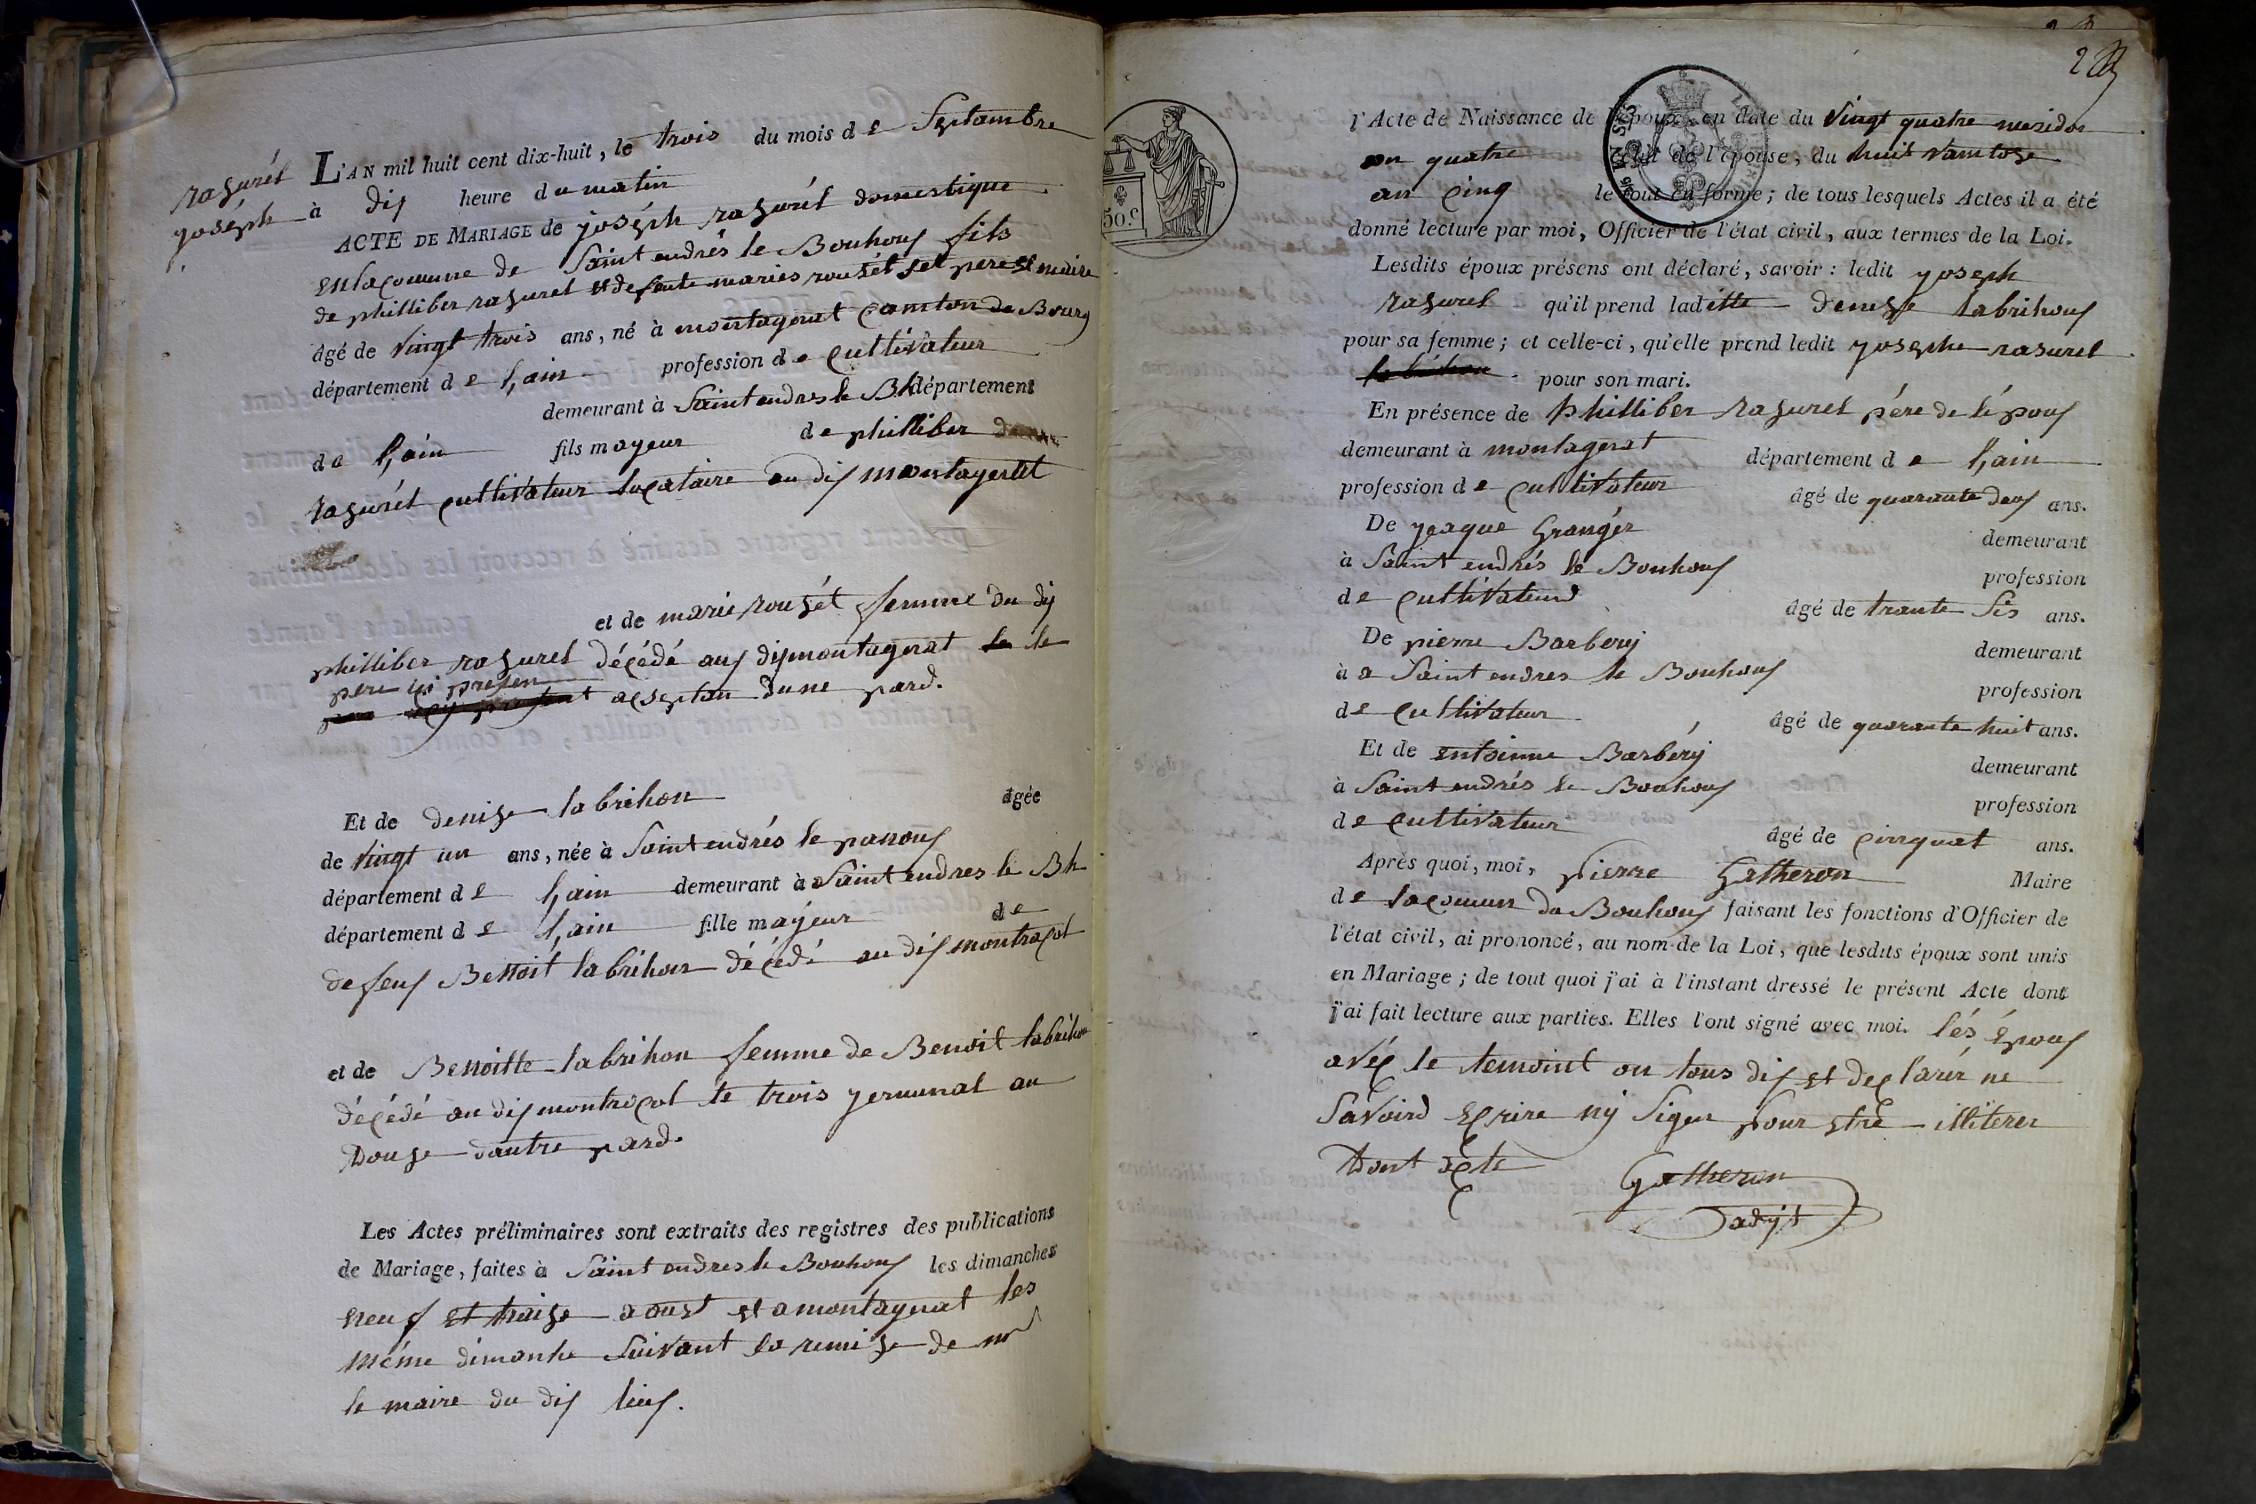 rasurél
joséph
L'AN mil huit cent dix-huit, le trois du mois de Septambre
à dix heure du matin
ACTE DE MARIAGE de joséph rasurél domestique
en la comune de Saint endrés le Bouhoux fils
de philliber rasurel et defente maries rousét set pere et maire
âgé de vingt trois ans, né à montagnat canton de Bourg
département de l,ain profession de cultivateur
demeurant à Saint endres le Bh département
de l,ain fils mayeur de philliber
rasurél cultivateur locataire au dis montagnat
et de marie rousét femme du dis
philliber rasurel décédé aus dis montagnat le
pere ici presen
acseptan dune pard.
Et de denise labrihon âgée
de vingt un ans, née à Saint endrés le panoux
département de l,ain demeurant à Saint endres le Bh
département de l,ain fille mayeur de
defeux Benoit labrihon décédé au dis montracol
et de Benoitte labrihon femme de Benoit labrihon
décédé au dis montracol le trois jermunal an
douze dautre pard.
Les Actes préliminaires sont extraits des registres des publications
de Mariage, faites à Saint endres le Bouhoux les dimanches
neuf et traise aoust et a montagnat les
même dimanhe suivant la remise de mr
le maire du dis lieux.
50.c
l'Acte de Naissance de l'époux, en date du vingt quatre mesidor
an quatre celui de l'épouse, du huit vantose
an cinq le tout en forme; de tous lesquels Actes il a été
donné lecture par moi, Officier de l'état civil, aux termes de la Loi.
Lesdits époux présens ont déclaré, savoir: ledit yoseph
rasurel qu'il prend ladétte denise labrihoux
pour sa femme; et celle-ci, qu'elle prend ledit yosephe rasurel
pour son mari.
En présence de philliber rasurel pére de lépoux
demeurant à montagnat département de l,ain
profession de cultivateur âgé de quarante deux ans.
De yaque Grangér demeurant
à Saint endrés le Bouhoux profession
de cultivateur âgé de trante sis ans.
De pierre Barbery demeurant
à a Saint endres le Bouhoux profession
de cultivateur âgé de quarante huit ans.
Et de entoinne Barbéry demeurant
à Saint endrés le Bouhoux profession
de cultivateur âgé de cinquat ans.
Après quoi, moi, pierre Gatheron Maire
de la comun du Bouhoux faisant les fonctions d'Officier de
l'état civil, ai prononcé, au nom de la Loi, que lesdits époux sont unis
en Mariage; de tout quoi j'ai à l'instant dressé le présent Acte dont
j'ai fait lecture aux parties. Elles l'ont signé avec moi. lés époux
avéc le temoint on tous dis et declarér ne
savoird ecrire ny signer pour etre illiterer
dont acte Gatheron